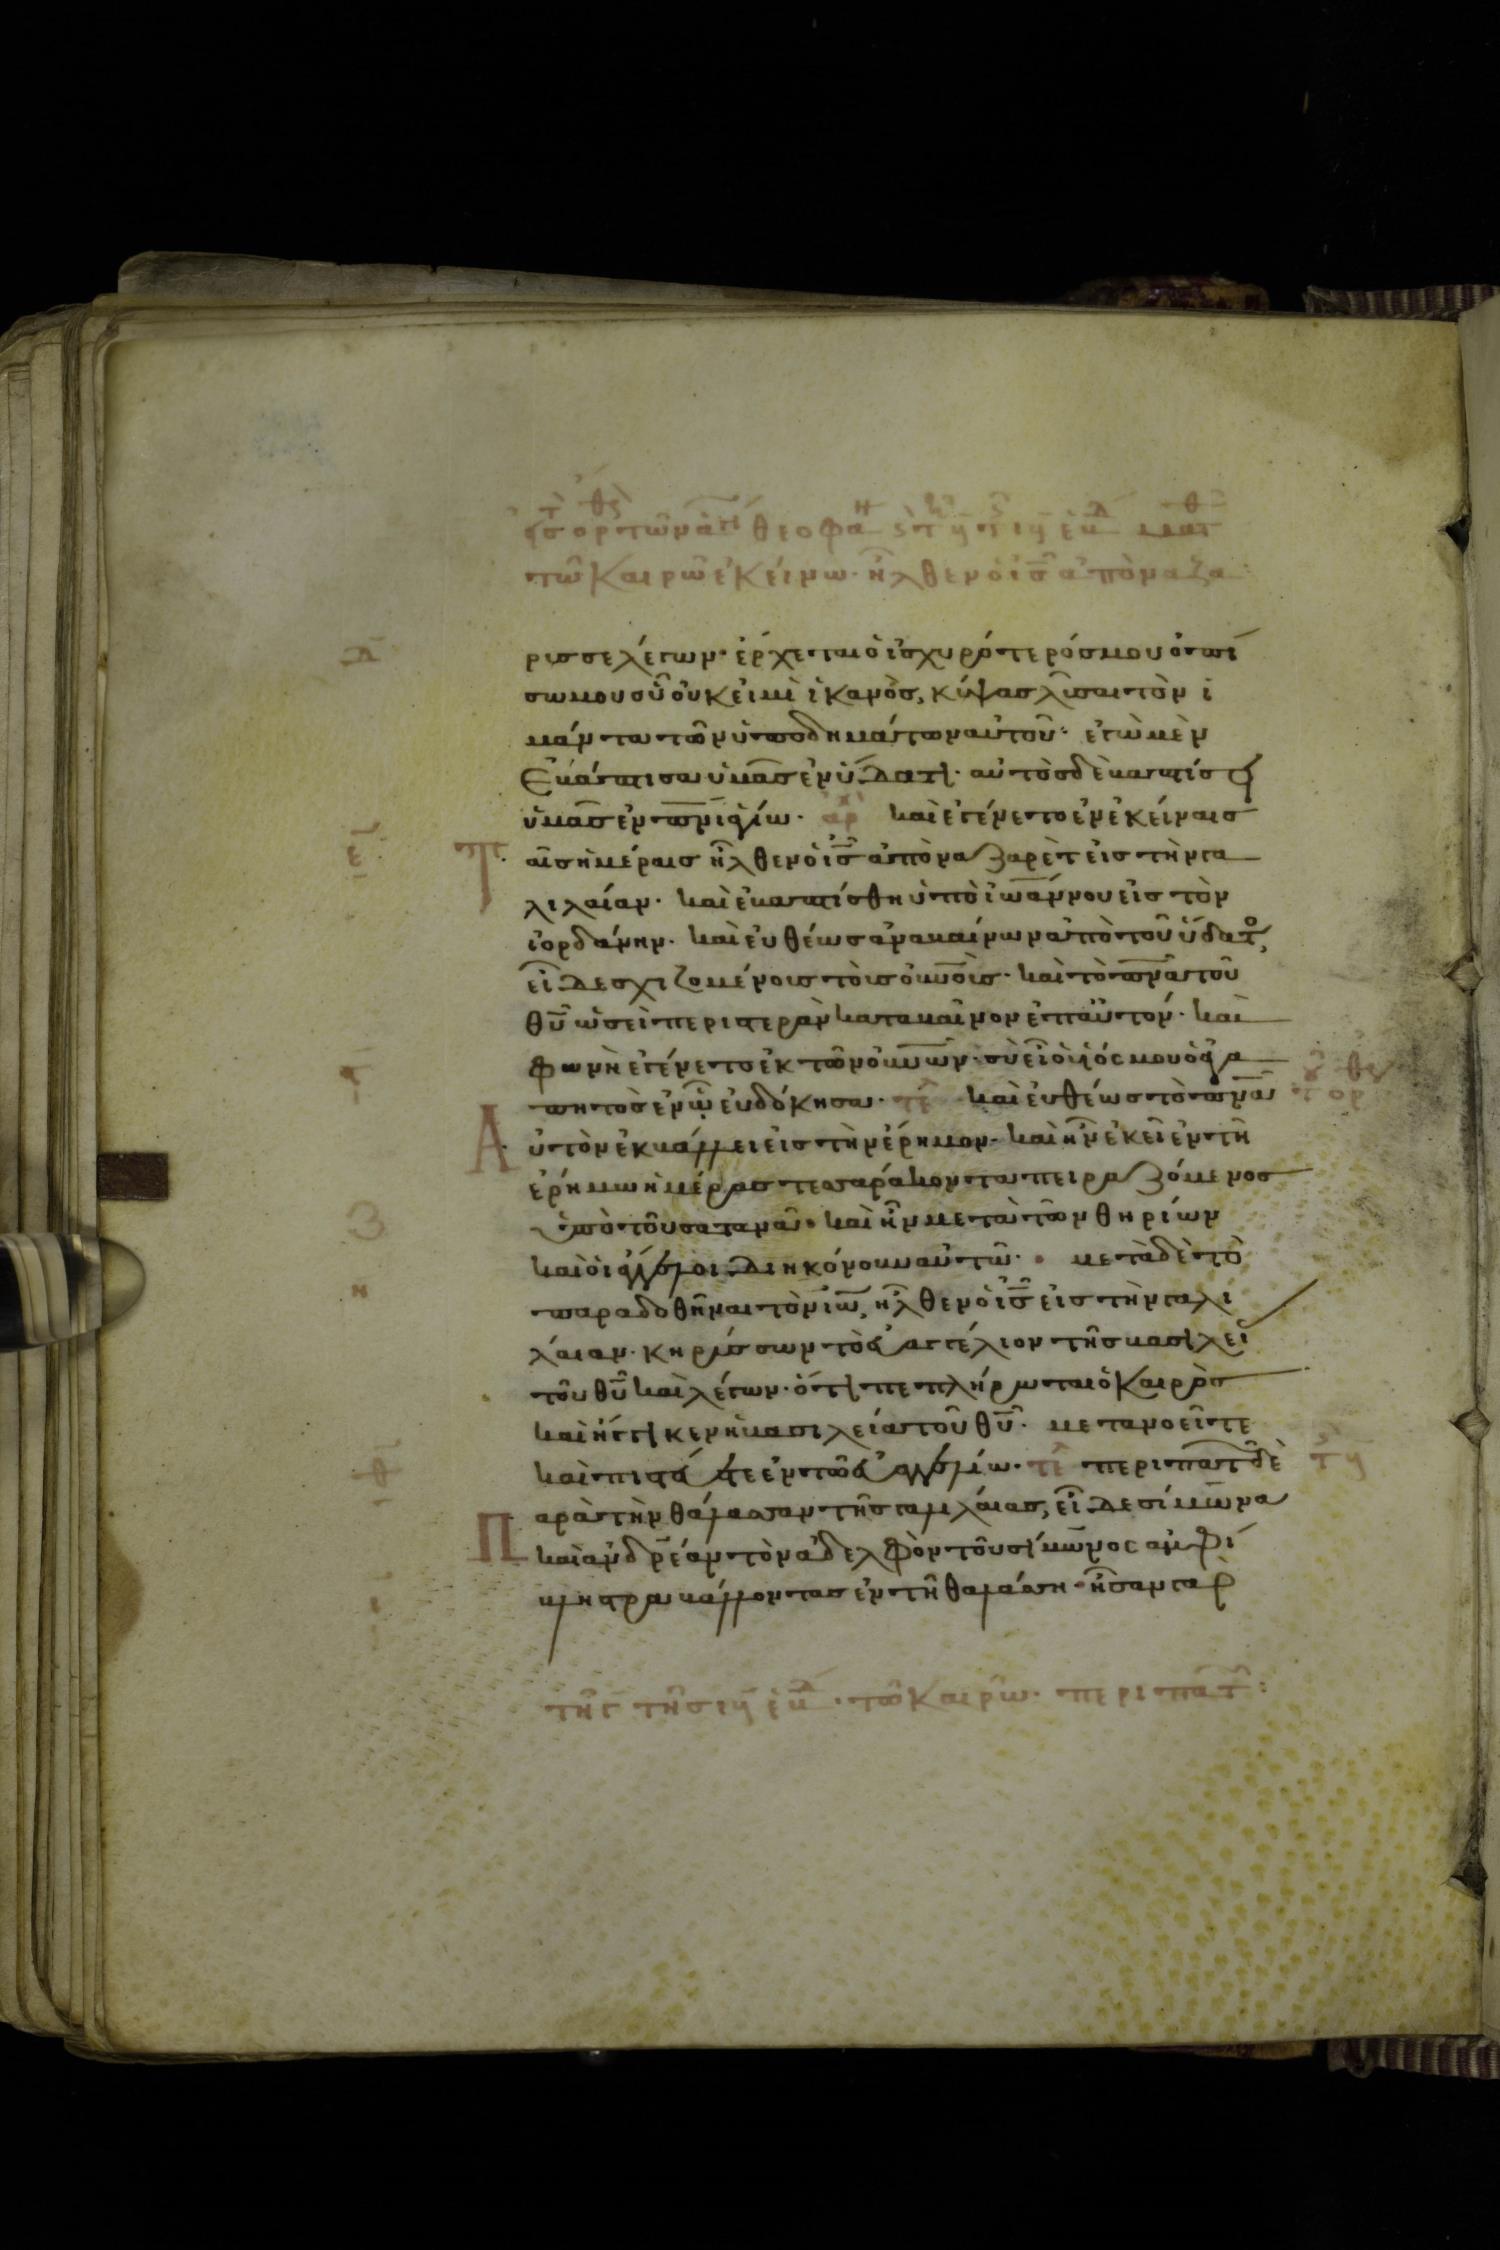 τῶ καιρῶ ἐκείνω· ἦλθεν ὁ ἰς̅ ἀπὸ ναζα
ρισσε λέγων· ἔρχεται ὁ ἰσχυρότερός μου ὀπί
σω μου οὗ οὐκ εἰμὶ ἱκανὸς, κύψας λῦσαι τὸν ἱ
μάντα τῶν ὑποδημάτων αὐτοῦ· ἐγὼ μὲν
ἐβάπτισα ὑμᾶς ἐν ὕδατι· αὐτὸς δὲ βαπτίσει
ὑμᾶς ἐν πνι̅ ἁγίω· ἀρχ καὶ ἐγένετο ἐν ἐκείναις
Τ αῖς ἡμέραις ἦλθεν ὁ ἰς̅ ἀπὸ ναζαρὲτ εἰς τὴν γα
λιλαίαν· καὶ ἐβαπτίσθη ὑπὸ ἰωάννου εἰς τὸν
ἰορδάνην· καὶ εὐθέως ἀναβαίνων ἀπὸ τοῦ ὕδατος,
εἶδε σχιζομένους τοὺς οὐνοὺς· καὶ τὸ πνα̅ τοῦ
θυ̅ ὡσεὶ περιστερὰν καταβαῖνον ἐπ' αὐτόν· καὶ
φωνὴ ἐγένετο ἐκ τῶν οὐνῶν· σὺ εἶ ὁ υἱός μου ὁ ἀγα
πητὸς ἐν ᾧ εὐδόκησα· τέ καὶ εὐθέως τὸ πνα̅
Α ὐτὸν ἐκβάλλει εἰς τὴν ἔρημον· καὶ ἦν ἐκεῖ ἐν τῆ
ἐρήμω ἡμέρας τεσσαράκοντα πειραζόμενος
ὑπὸ τοῦ σατανᾶ· καὶ ἦν μετὰ τῶν θηρίων
καὶ οἱ ἄγγελοι διηκόνουν αὐτῶ· μετὰ δὲ τὸ
παραδοθῆναι τὸν ἰω̅, ἦλθεν ὁ ἰς̅ εἰς τὴν γαλι
λαίαν· κηρύσσων τὸ εὐαγγέλιον τῆς βασιλεί
τοῦ θυ̅ καὶ λέγων· ὅτι πεπλήρωται ὁ καιρὸς
καὶ ἤγγικεν ἡ βασιλεία τοῦ θυ̅· μετανοεῖτε
καὶ πιστεύετε ἐν τῶ εὐαγγελίω· τέ περιπατ δὲ
Π αρὰ τὴν θάλασσαν τῆς γαλιλαίας, εἶδε σίμωνα
καὶ ἀνδρέαν τὸν ἀδελφὸν τοῦ σίμωνος ἀμφί
βληστρα βάλλοντας ἐν τῆ θαλάσση· ἦσαν γαρ
τῆ ϛ τῆς ιγ ἑβδ· τῶ καιρῶ· περιπατ: